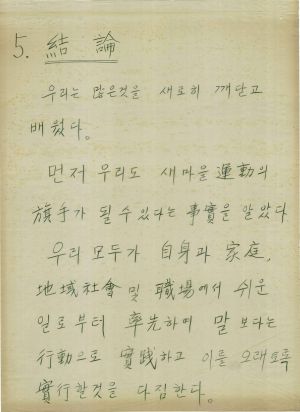 5. 結論
우리는 많은것을 새로히 깨닫고
배웠다.
먼저 우리도 새마을 運動의
旗手가 될 수 있다는 事實을 알았다
우리 모두가 自身과 家庭,
地域社會 및 職場에서 쉬운
일로부터 率先하여 말 보다는
行動으로 實践하고 이를 오래토록
實行할것을 다짐한다.